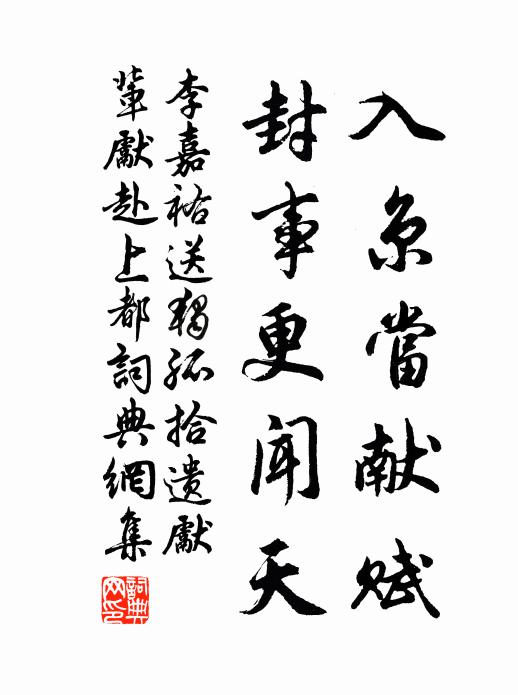 入京當献賦
封事更聞天
李嘉祐送獨孤拾遺獻
輩獻赴上都詞典網集
詞典網印